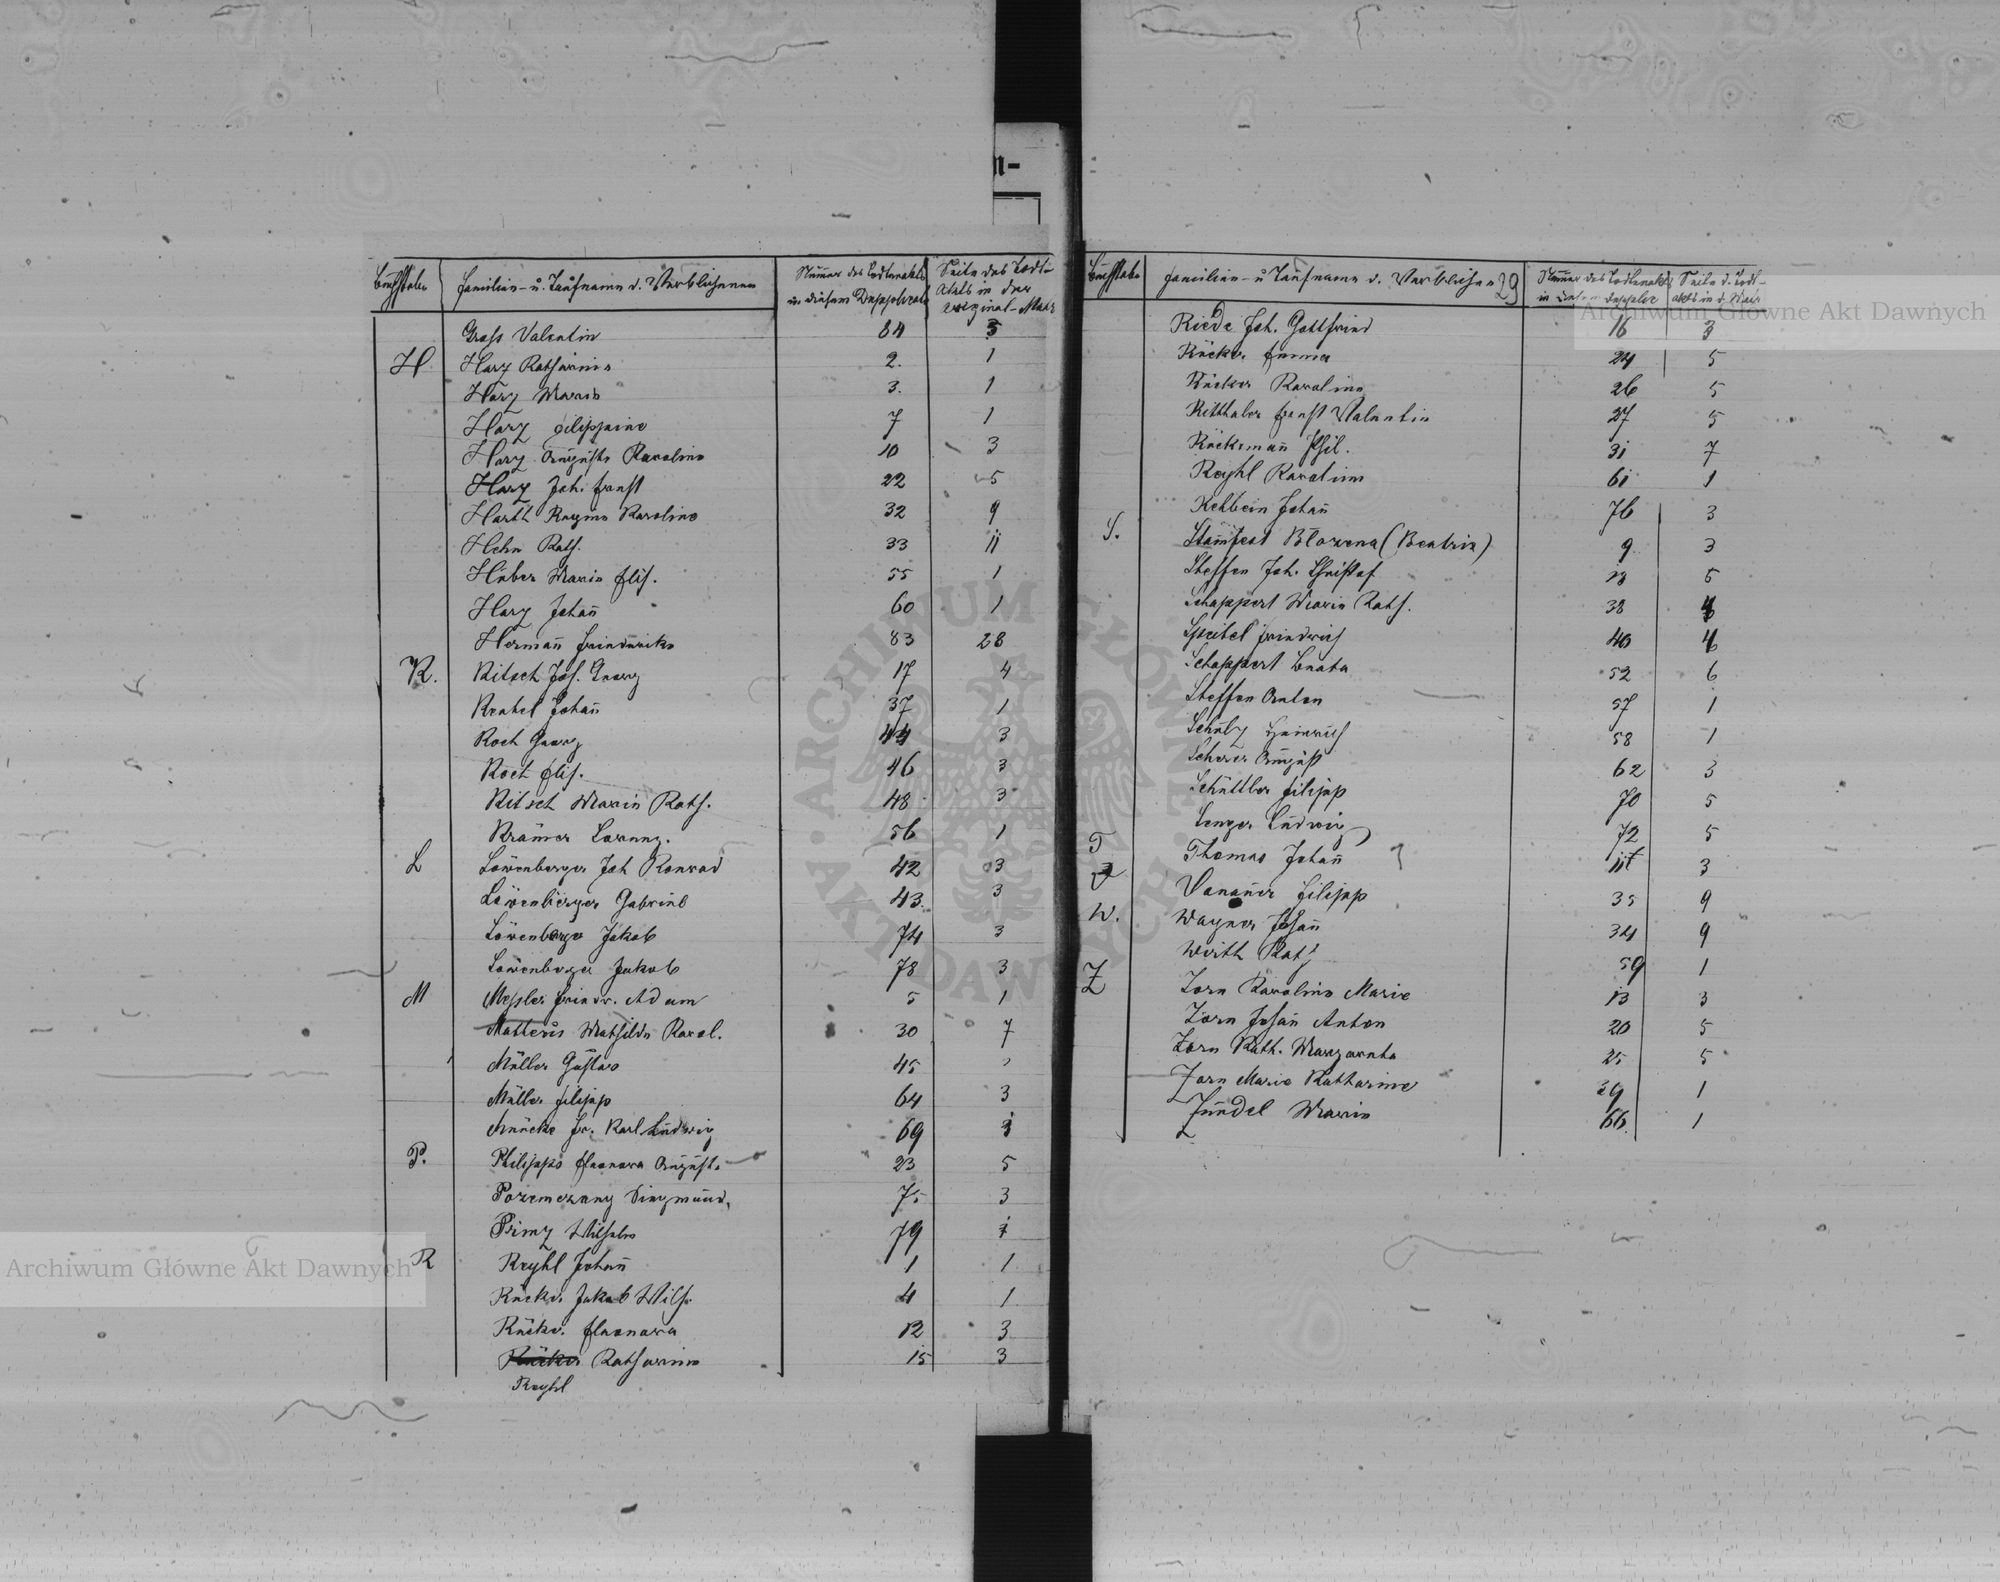 n-
Buchstabe Familien- u. Taufname d. Verblichenen Nummer des Todtenaktes in diesem Dupplicate Seite des Todt- akts in der original-Matr
Gross Valentin 84 3
H Harz Katharina 2. 1
Harz Maria 3. 1
Harz Filippine 7 1
Harz Augusta Karolina 10 3
Harz Joh. Ernst 22 5
Harth Regina Karoline 32 9
Hehn Kath. 33 11
Huber Maria Elis. 55 1
Harz Johann 60 1
Hermann Friederike 83 28
K. Kitsch Joh. Georg 17 4
Krebel Johann 37 1
Koch Georg 44 3
Koch Elis. 46 3
Kitsch Maria Kath. 48 3
Krämer Lorenz. 56 1
L Löwenberger Joh Konrad 42 3
Löwenberger Gabriel 43 3
Löwenberger Jakob 74 3
Löwenberger Jakob 78 3
M Messler Friedr. Adam 5 1
Matteus Mathilde Karol. 30 7
Müller Gustav 45
Müller Filipp 64 3
Karl Ludwig 69 3
P. Philipps Eleonora Augusta 23 5
Pozemczany Siegmund, 75 3
Prinz Wilhelm 79 1
R Reyhl Johann 1 1
Rücker Jakob Wilh. 4 1
Rücker Eleonora 12 3
Rücker Katharina 15 3
Reyhl
Buchstabe Familien- u Taufname d. Verblichenen 29 Nummer des Todtenaktes in diesem Duplic Seite d. Todt- akts in d. Matr
Riede Joh. Gottfried 16 3
Rücker Emma 24 5
Rücker Karolina 26 5
Ritthaler Ernst Valentin 27 5
Rückemann Phil. 31 7
Reyhl Karolina 61 1
Rehbein Johann 76 3
S. Stamfest Blazena (Beatrix) 9 3
Steffen Joh. Christof 18 5
Schappert Maria Kath. 38
Speitel Friedrich 40
Schappert Beata 52 6
Steffen Anton 57 1
Schulz Heinrich 58 1
Scherer August 62 3
Schüttler Filipp 70 5
Senger Ludwig 72 5
T Thomas Johann 3
V Filipp 35 9
W. Wagner Johann 34 9
Wirth Kath 59 1
Z Zorn Karolina Marie 13 3
Zorn Johann Anton 20 5
Zorn Kath. Margaretha 25 5
Zorn Marie Katharine 39 1
Zündel Maria 66. 1
ARCHIWUM GŁÓWNE AKT DAWNYCH
Archiwum Główne Akt Dawnych
Archiwum Główne Akt Dawnych